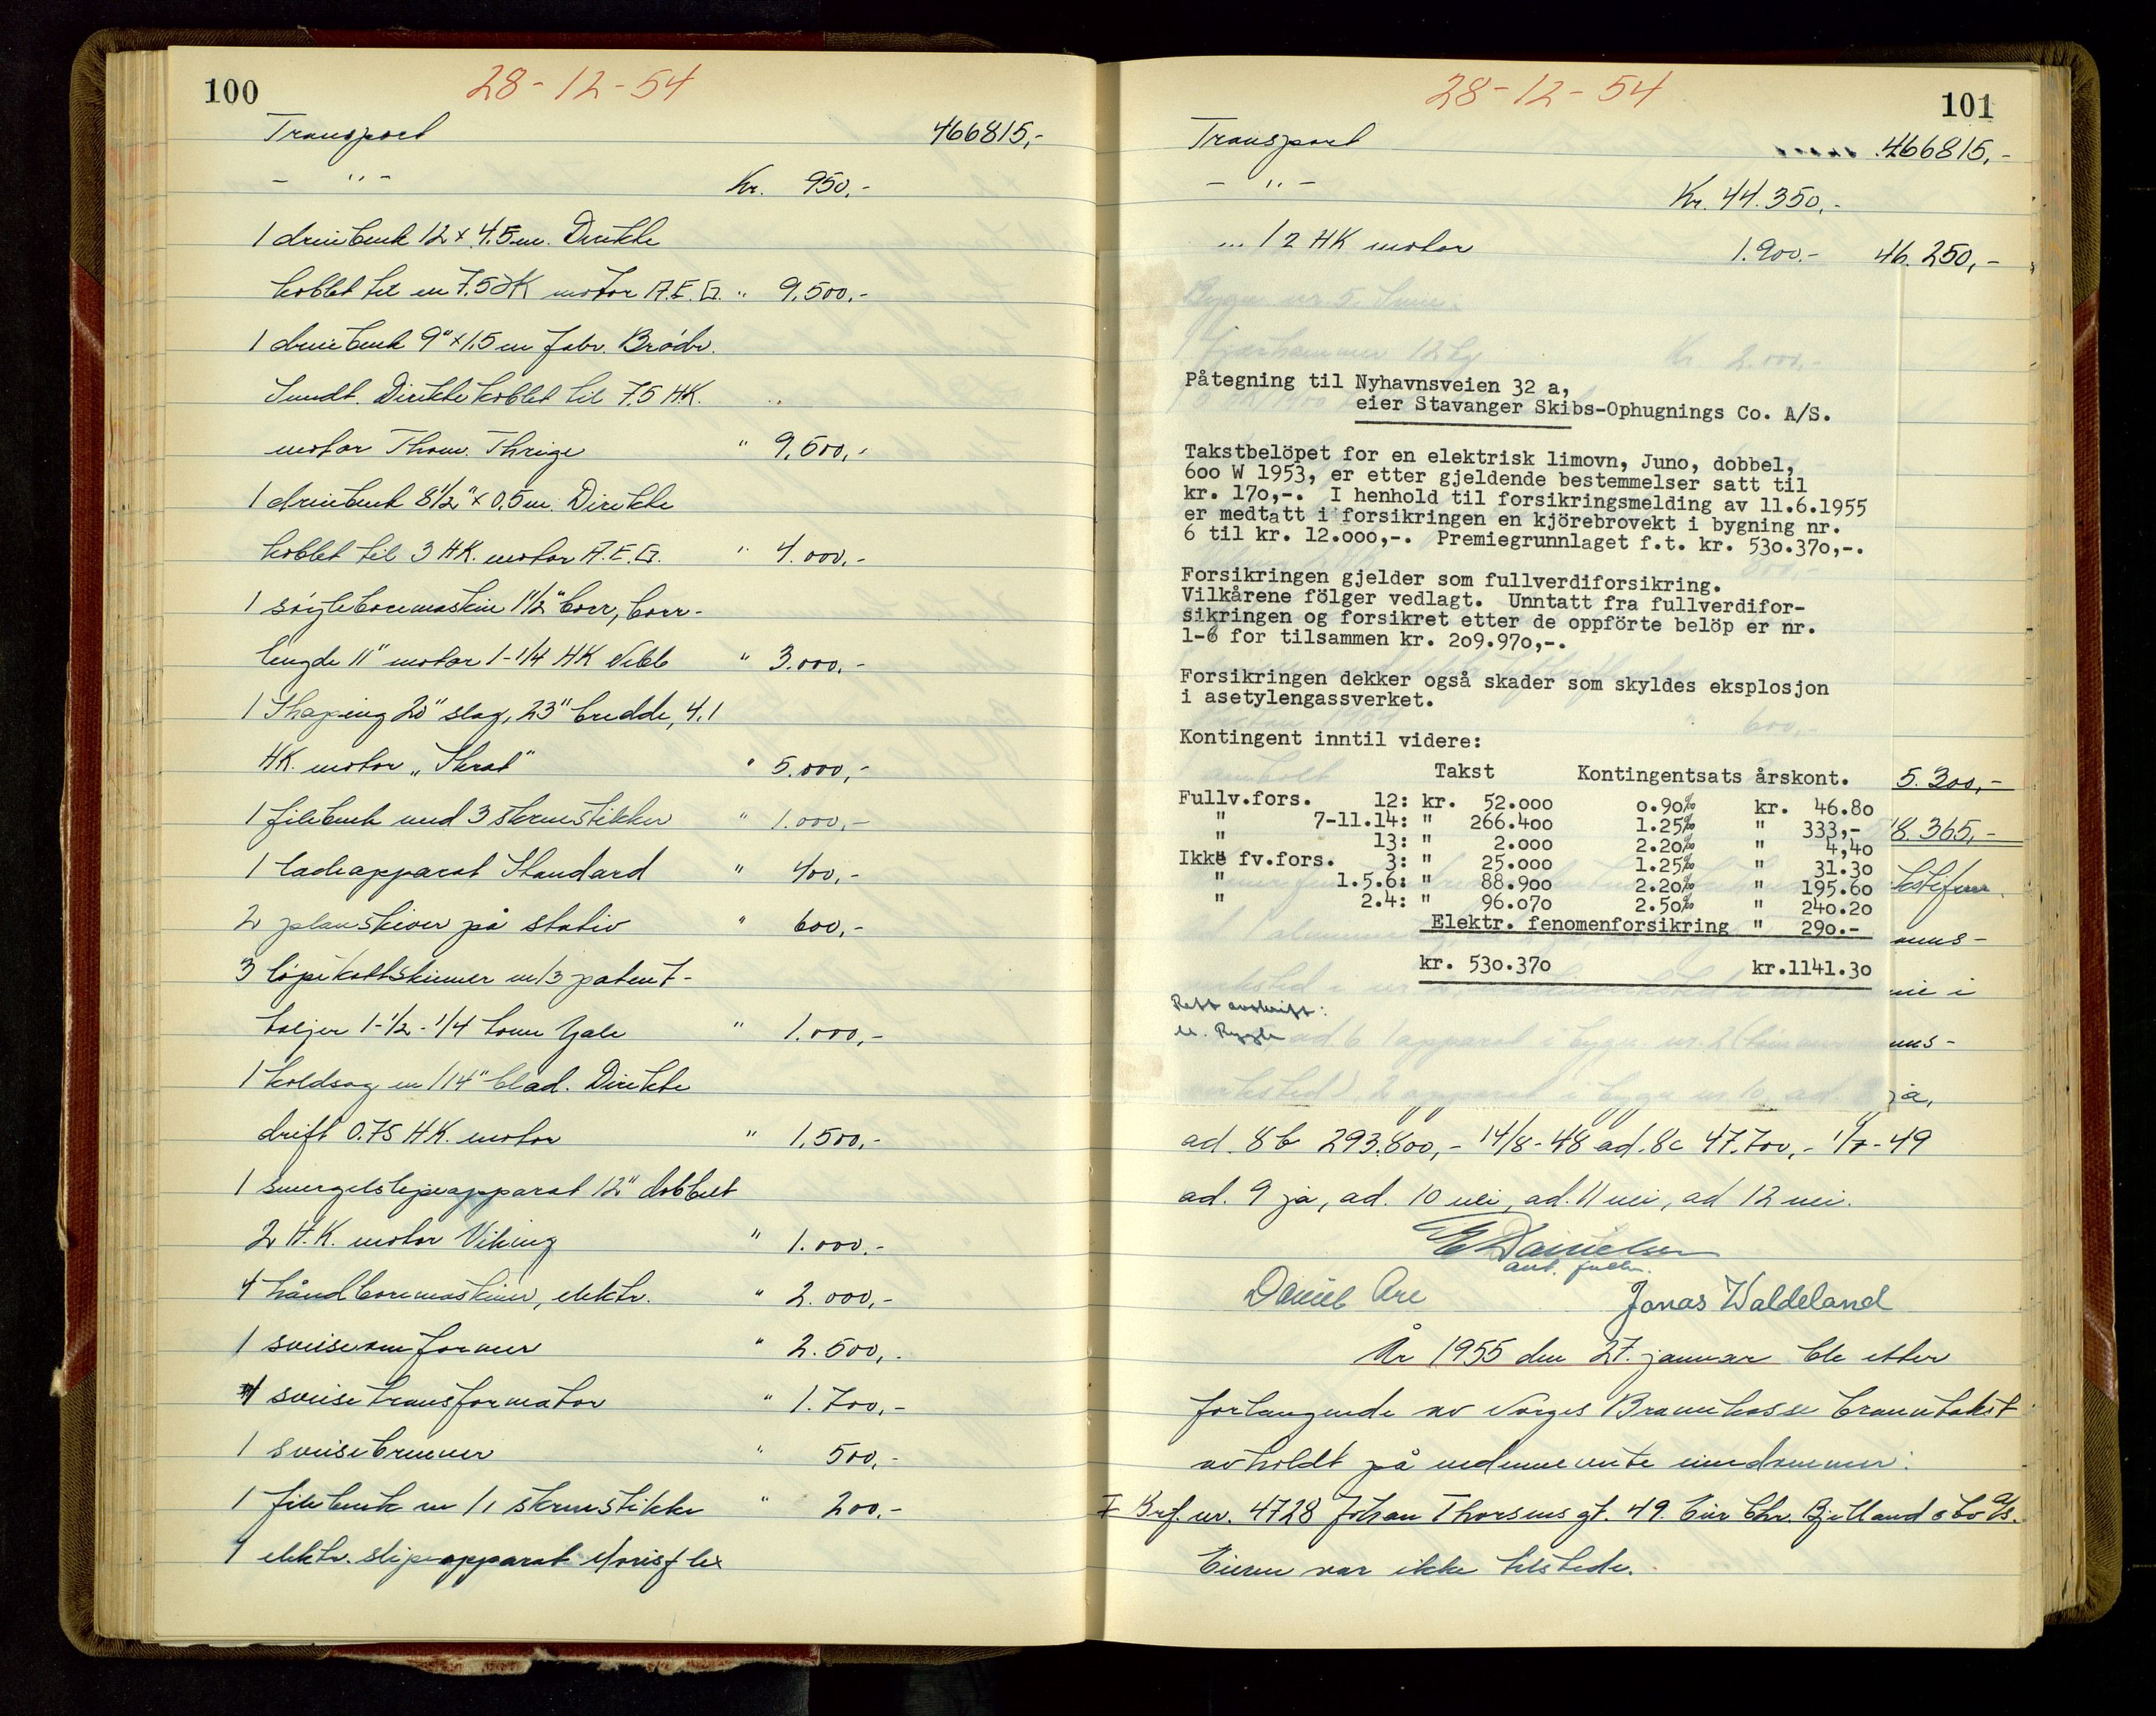 100
28-12-54
Transport 466815,-
- " - Kr. 950,-
1 dreiebenk 12 x 4.5 m. Direkte
koblet til en 7.5 HK motor A.E.G. " 9.500,-
1 dreiebenk 9" x 1.5 m fabr. Brødr.
Sundt. Direkte koblet til 7.5 HK.
motor Thom. Thrige " 9.500,-
1 dreiebenk 8 1/2" x 0.5 m. Direkte
koblet til 3 HK. motor A.E.G. " 4.000,-
1 søyleboremaskin 1 1/2" borr, borr-
lengde 11" motor 1-1/4 HK Nebb " 3.000,-
1 Shaping 20" slag, 23" bredde, 4.1
HK. motor „Skrat" " 5.000,-
1 filebenk med 3 skruestikker " 1.000,-
1 ladeapparat Standard " 400,-
2 planskiver på stativ " 600,-
3 løpekattskinner m/3 patent-
taljer 1-1/2-1/4 tonn Yale " 1.000,-
1 koldsag m/14" blad. Direkte
drift 0.75 HK. motor " 1.500,-
1 smergelslipeapparat 12" dobbelt
2 H.K. motor Viking " 1.000.-
4 håndboremaskiner, elektr. " 2.000,-
1 sveiseomformer " 2.500,-
1 sveisetransformator " 1.700,-
1 sveisebrenner " 500,-
1 filebenk m/1 skruestikke " 200.-
1 elektr. slipeapparat Morisflex
101
28-12-54
Transport 466815,-
- " - Kr. 44.350,-
... 1 2 HK motor 1.900.- 46.250,-
Bygn. nr. 5. Smie:
1 fjærhammer 12 kg Kr 2.000,-
Påtegning til Nyhavnsveien 32 a,
eier Stavanger Skibs-Ophugnings Co. A/S.
Takstbelöpet for en elektrisk limovn, Juno, dobbel,
600 W 1953, er etter gjeldende bestemmelser satt til
kr. 170,-. I henhold til forsikringsmelding av 11.6.1955
er medtatt i forsikringen en kjörebrovekt i bygning nr.
6 til kr. 12.000,-. Premiegrunnlaget f.t. kr. 530.370,-.
Forsikringen gjelder som fullverdiforsikring.
Vilkårene fölger vedlagt. Unntatt fra fullverdifor-
sikringen og forsikret etter de oppförte belöp er nr.
1-6 for tilsammen kr. 209.970,-.
Forsikringen dekker også skader som skyldes eksplosjon
i asetylengassverket.
600,-
Kontingent inntil videre:
ambolt
Takst Kontingentsats årskont. 5.300,-
Fullv.fors. 12: kr. 52.000 0.90‰ kr. 46.80
" 7-11.14: " 266.400 1.25‰ " 333,- 18.365,-
" 13: " 2.000 2.20‰ " 4,40
Ikke fv.fors. 3: " 25.000 1.25‰ " 31.30
" 1.5.6: " 88.900 2.20‰ " 195.60
" 2.4: " 96.070 2.50‰ " 240.20
Elektr. fenomenforsikring " 290.-
kr. 530.370 kr.1141.30
Rett avskrift:
ad. 6 1 apparat i bygn. nr. 2
verksted), 2 apparat i bygn nr. 10 ad. ja,
ad. 8b 293.800,- 14/8-48 ad. 8c 47.700,- 1/7-49
ad. 9 ja, ad. 10 nei, ad. 11 nei, ad 12 nei.
E Danielsen
aut. fullm.
Daniel Are Jonas Waldeland
År 1955 den 27. januar ble etter
forlangende av Norges Brannkasse branntakst
avholdt på nedennevnte eiendommer:
I Brf. nr. 4728 Johan Thorsens gt. 49. Eier Chr. Bjelland & Co A/s.
Eieren var ikke tilstede.